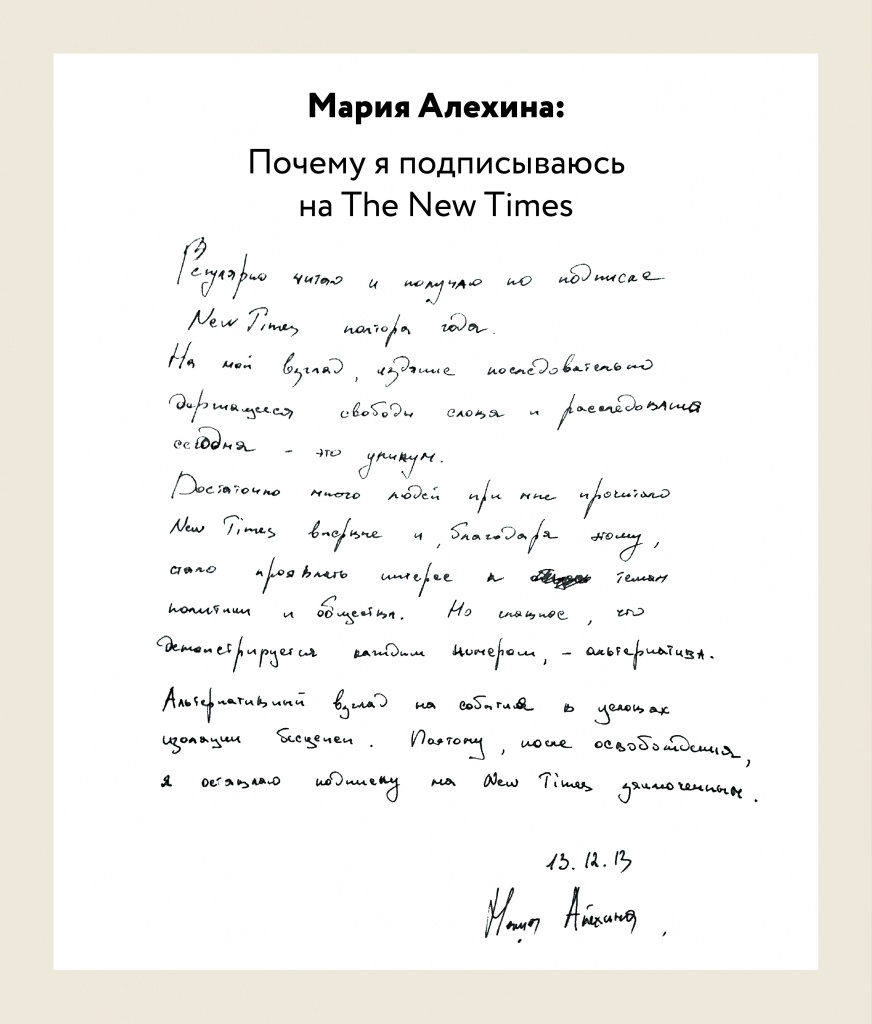 Мария Алехина:
Почему я подписываюсь
на The New Times
Регулярно читаю и получаю по подписке
New Times полтора года.
На мой взгляд, издание последовательно
держащееся свободы слова и расследования
сегодня - это уникум.
Достаточно много людей при мне прочитало
New Times впервые и, благодаря этому,
стало проявлять интерес к темам
политики и общества. Но главное, что
демонстрируется каждым номером, - альтернатива.
Альтернативный взгляд на события в условиях
изоляции бесценен. Поэтому, после освобождения,
я оставляю подписку на New Times заключенным.
13.12.13
Мария Алехина